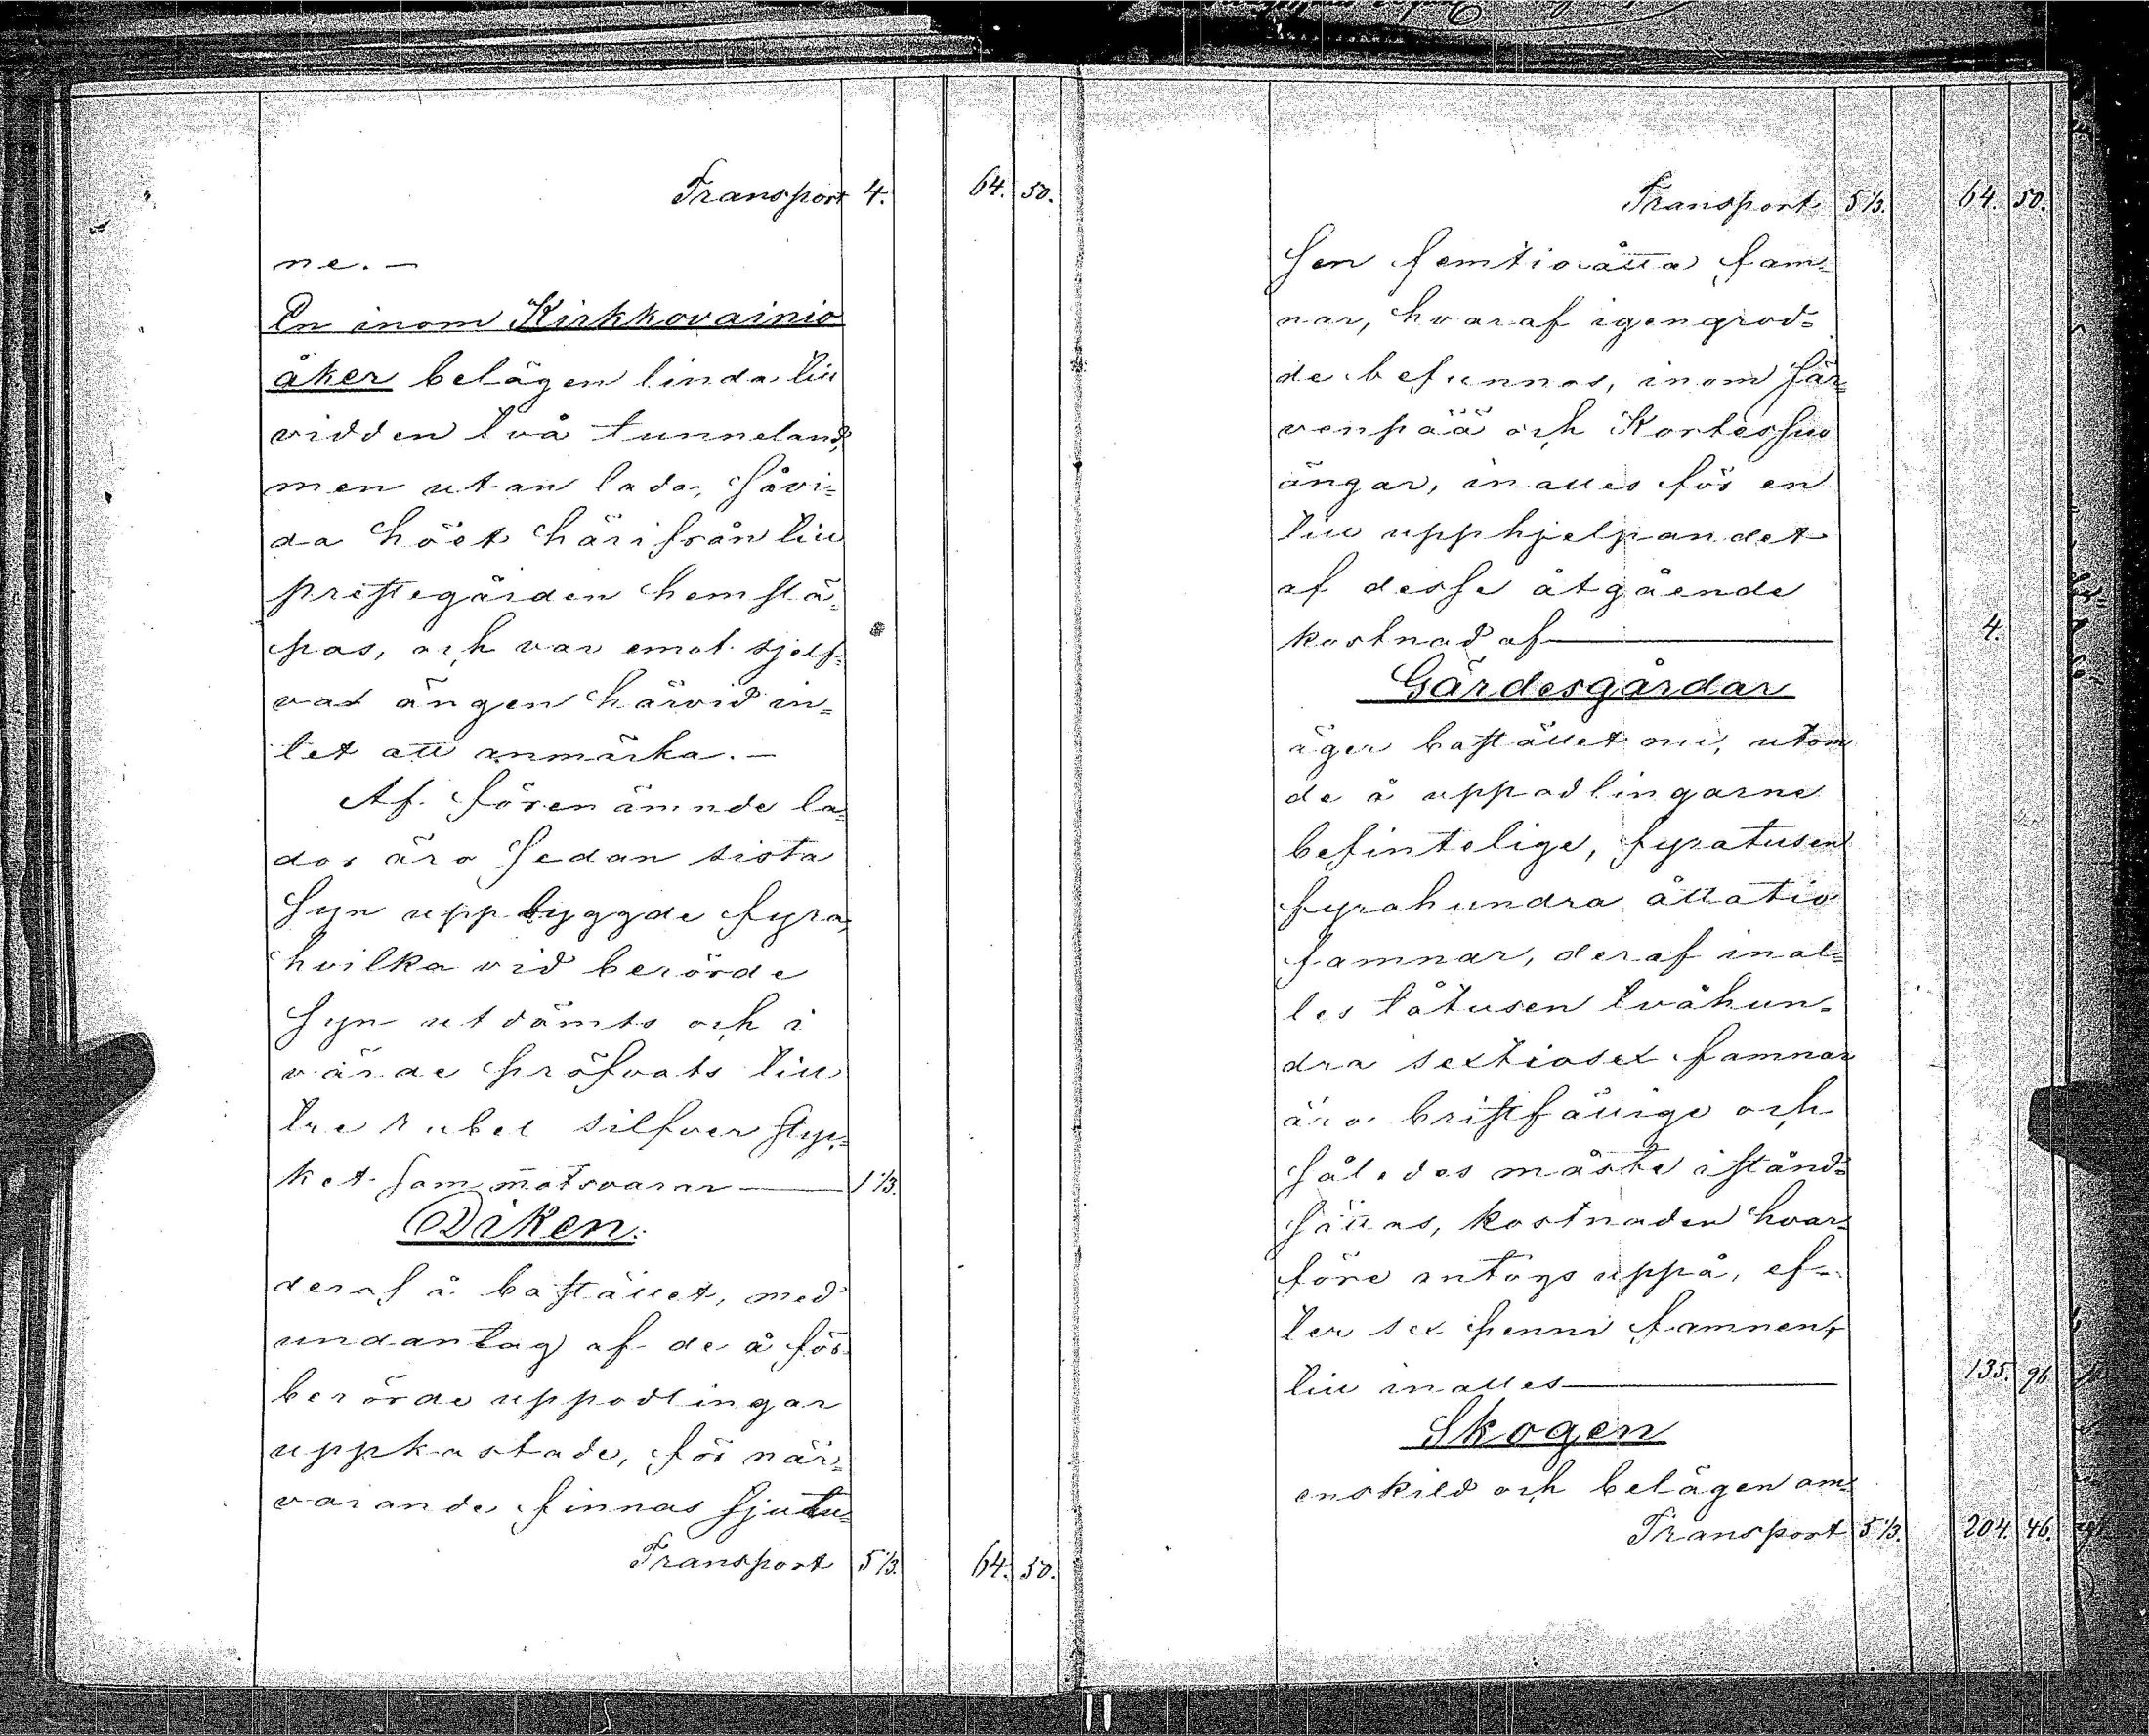 Transport 4. 64. 50.
ne. –
En inom Kirkkovainio
åker belägen linda till
vidden två tunneland,
men utan lada, såvi-
da höet härifrån till
prestegården hemslä-
pas, och var emot sjelf-
va ängen härvid in-
tet att anmärka. –
Af förenämnde la-
dor äro sedan sista
syn uppbyggde fyra,
hvilka vid berörde
syn utdömts och i
värde pröfvats till
tre rubel silfver styc-
ket som motsvarar 1 1/3.
Diken.
deraf å bostället, med
undantag af de å för-
berörde uppodlingar
uppkastade, för när-
varande finnas sjutu-
Transport 5 1/3. 64. 50.
Transport 5 1/3. 64. 50.
sen femtioåtta fam-
nar, hvaraf igengrod-
de befunnos, inom Jär-
venpää och Kortessuo
ängar, inalles för en
till upphjelpandet
af desse åtgående
kostnad af 4.
Gärdesgårdar
äger bostället nu, utom
de å uppodlingarne
befintelige, fyratusen
fyrahundra åttatio
famnar, deraf inal-
les tåtusen tvåhun-
dra sextiosex famnar
äro bristfällige och
således måste istånd-
sättas, kostnaden hvar-
före antogs uppå, ef-
ter sex penni famnen,
till inalles 135. 96.
Skogen
enskild och belägen om-
Transport 5 1/3. 204. 46.